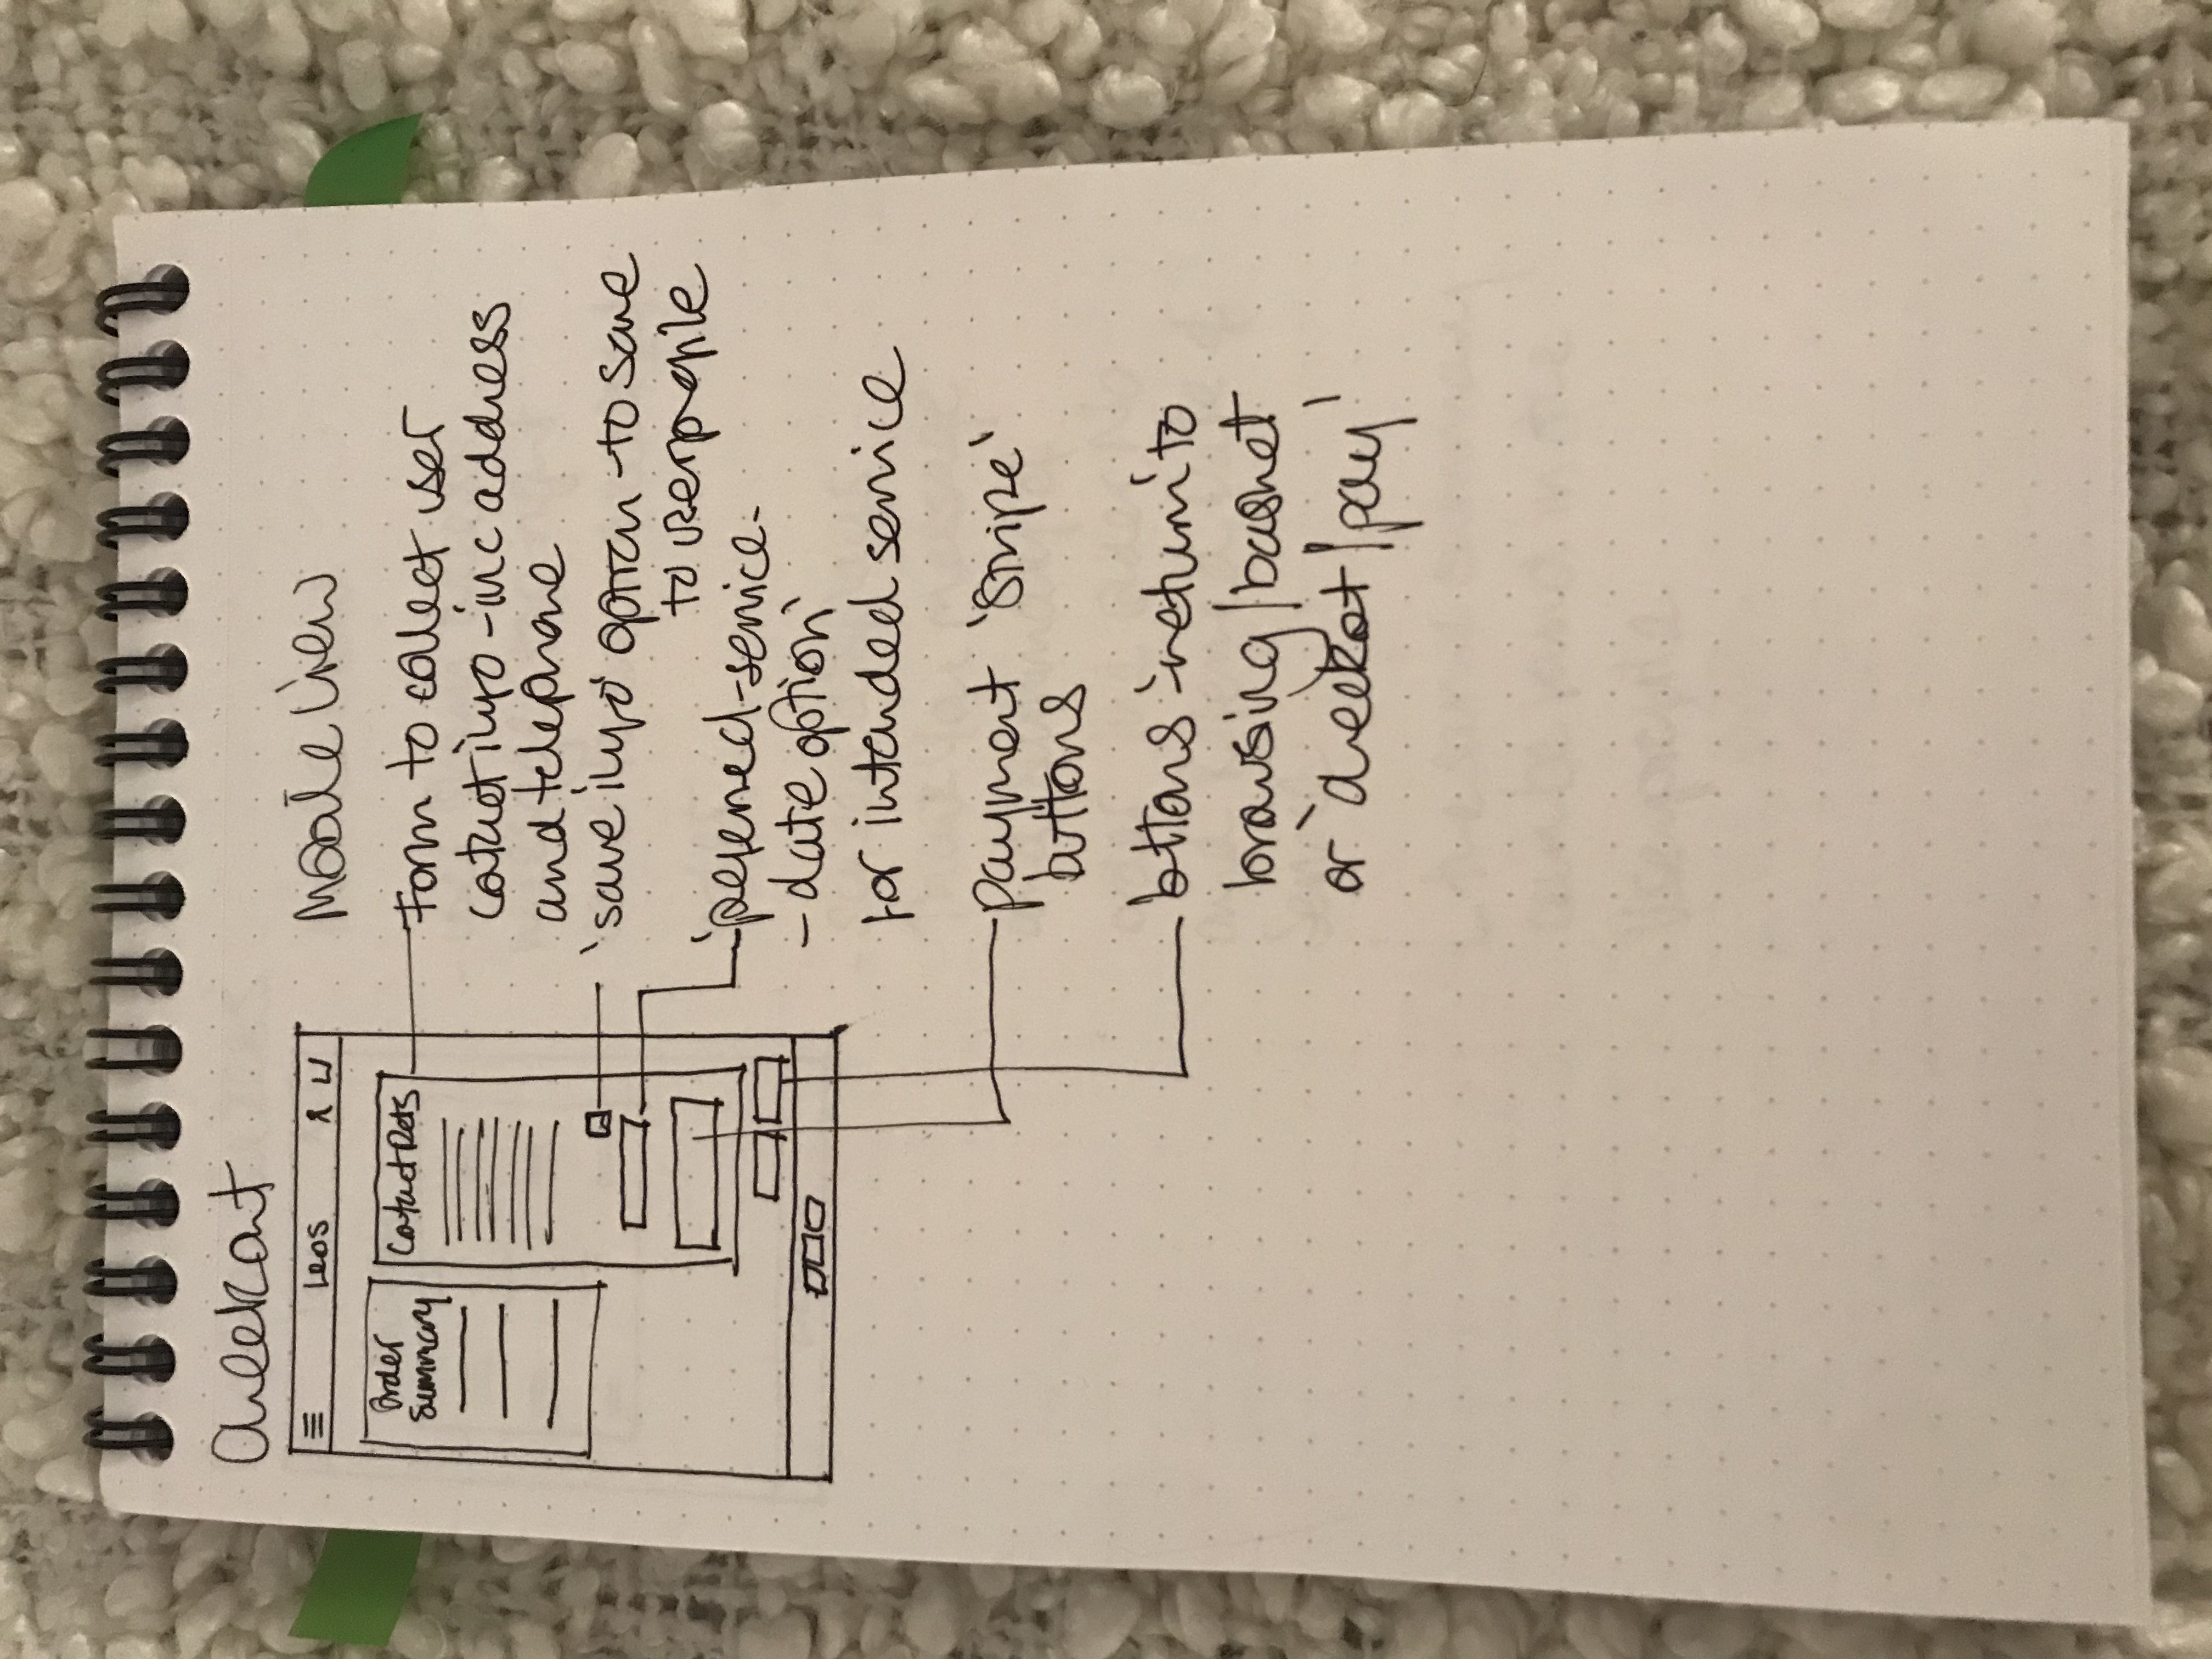 Checkout
Leos
Order
Summary
Contact Dets
Mobile View
Form to collect user
contact info - inc address
and telephone
'save info' option - to save
to user profile
'preferred-service-
- date option'
for intended service
payment 'Stripe'
buttons
buttons 'return' to
browsing / basket
or 'checkout / pay'